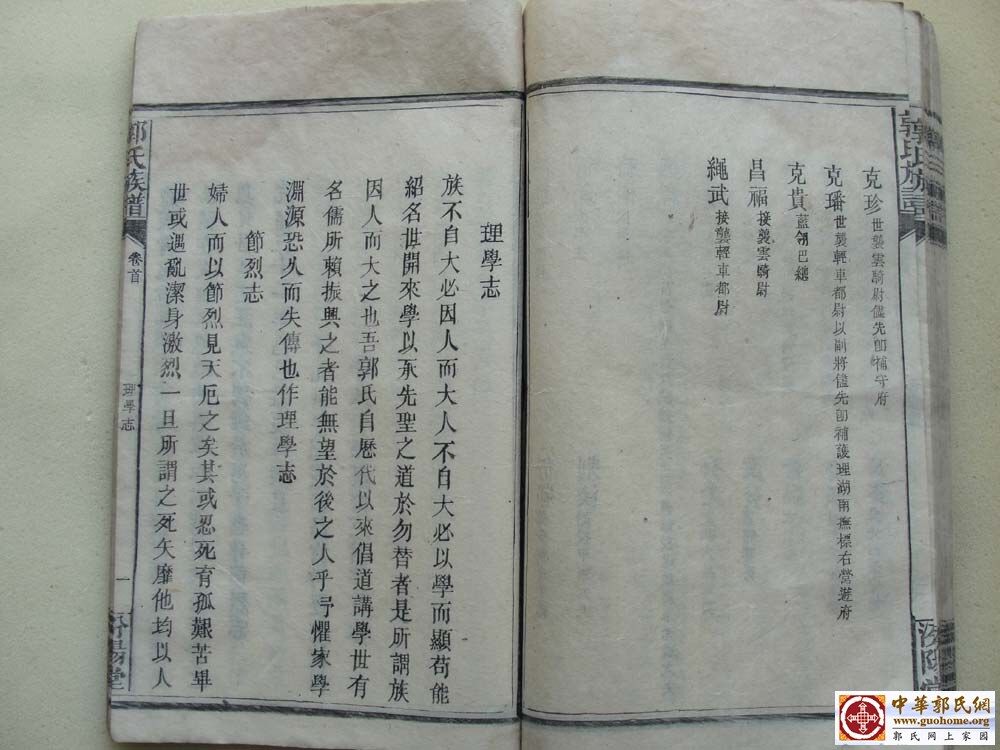 郭氏族譜
克珍 世襲雲騎尉儘先卽補守府
克璠 世襲輕車都尉以副將儘先卽補護理湖南撫標右營遊府
克貴 藍翎巴總
昌福 接襲雲騎尉
繩武 接襲輕車都尉
理學志
族不自大必因人而大人不自大必以學而顯苟能
紹名世開來學以承先聖之道於勿替者是所謂族
因人而大之也吾郭氏自歷代以來倡道講學世有
名儒所賴振興之者能無望於後之人乎予懼家學
淵源恐久而失傳也作理學志
節烈志
婦人而以節烈見天厄之矣其或忍死育孤艱苦畢
世或遇亂潔身激烈一旦所謂之死矢靡他均以人
郭氏族譜
卷首
理學志
一
汾陽堂
中華郭氏網
www.guohome.org
郭氏網上家園